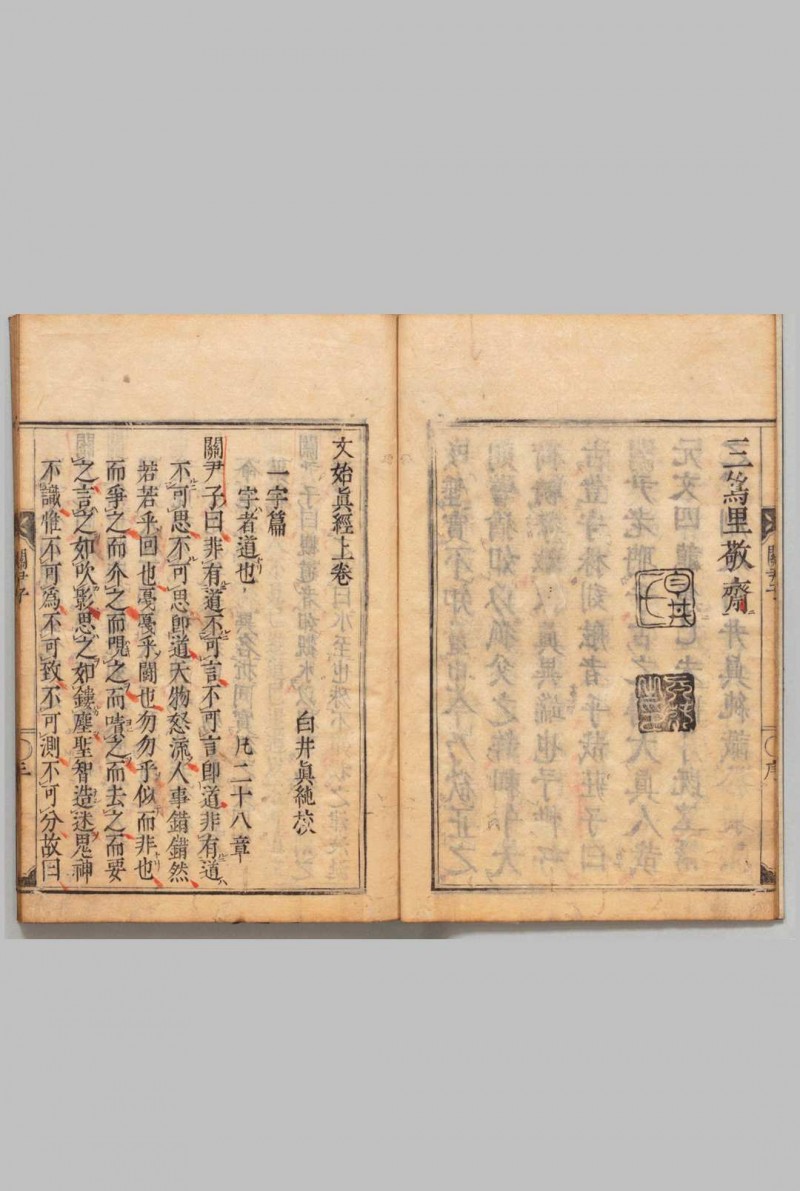 三篤里敬齋
白井
關尹子
序
文始眞經上卷
白井眞純校
一字篇
字者道也 凡二十八章
關尹子曰非有道不可言不可言卽道非有道
不可思不可思卽道天物怒流人事錯錯然
若若乎回也戞戞乎鬪也勿勿乎似而非也
而爭之而介之而哯之而嘖之而去之而要
之言之如吹影思之如鏤塵聖智造迷鬼神
不識惟不可爲不可致不可測不可分故曰
關尹子
三